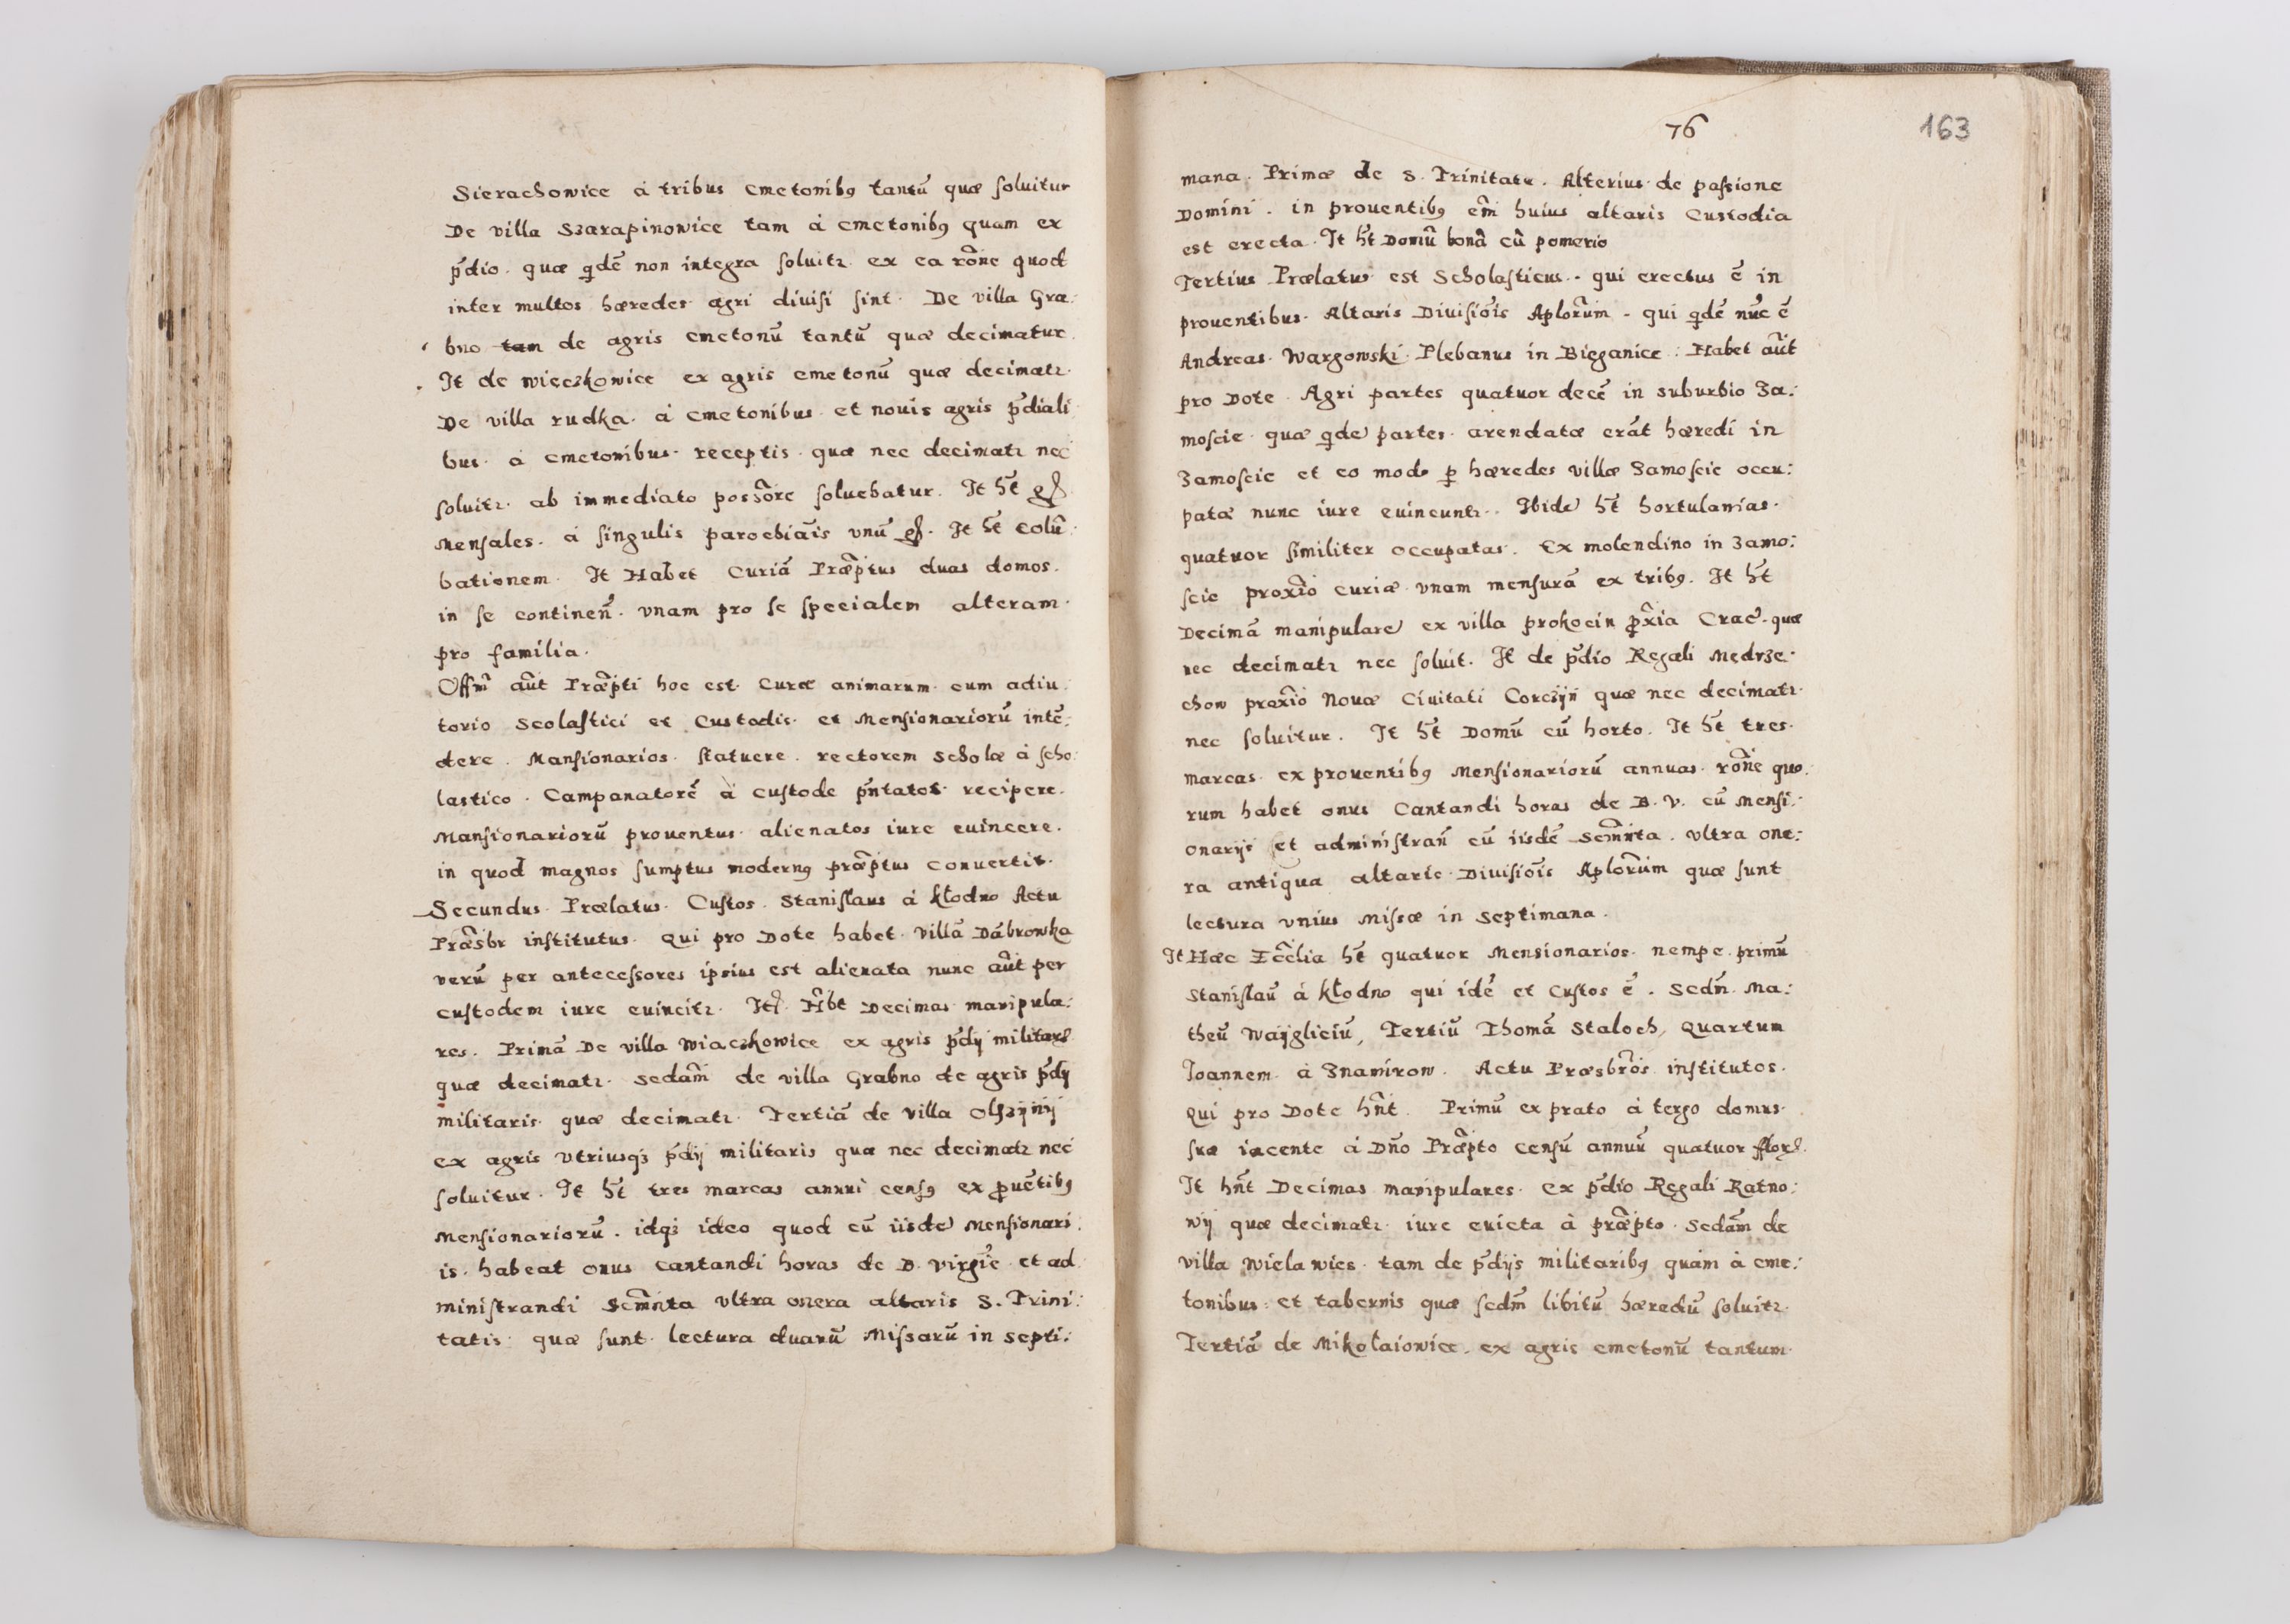 Sierachowice á tribus cmetonibꝯ tantũ quæ soluitur
De villa Szarapinowice tam á cmetonibꝯ quam ex
p̃dio. quæ qdẽ non integra soluitr. ex ea rõne quod
inter multos hæredes agri diuisi sint. De villa Gra:
bno tam de agris cmetonũ tantũ quæ decimatur.
It de Więczkowice ex agris cmetonũ quæ decimatr.
De villa rudka. á cmetonibus et nouis agris p̃diali
bus. á cmetonibus receptis quæ nec decimatr nec
soluitr. ab immediato possõre soluebatur. It ht̃ gſ
Mensales. á singulis parochiãis vnũ gſ. It ht̃ Colũ:
bationem. It Habet Curiã Præp̃tus duas domos.
in se continen̄. vnam pro se specialem alteram
pro familia.
Offm̃ aũt Præp̃ti hoc est. Curæ animarum cum adiu
torio Scolastici et Custodis et Mensionariorũ intẽ:
dere. Mansionarios statuere. rectorem Scholæ á scho:
lastico. Campanatorẽ á custode p̃ntatos recipere.
Mansionariorũ prouentus alienatos iure euincere.
in quod magnos sumptus modernꝯ præp̃tus conuertit.
Secundus Prælatus Custos. Stanislaus á Kłodno Actu
Præsb̃r institutus. qui pro Dote habet villã Dábrowka
verũ per antecessores ipsius est alienata nunc aũt per
custodem iure euincitr. Itẽ Hbt̃ Decimas manipula:
res. Primã De villa Wiaczkowice ex agris p̃dij militars
quæ decimatr. Sedam̃ de villa Grabno de agris p̃dij
militaris quæ decimatr. Tertiã de villa Olszijnij
ex agris vtriusqꝫ p̃dij militaris quæ nec decimatr nec
soluitur. It ht̃ tres marcas annui censꝯ ex ꝓuẽtibꝯ
Mensionariorũ. idqꝫ ideo quod cũ iisdẽ Mensionari:
is habeat onus Cantandi horas de B. Virgĩe et ad
ministrandi Scm̃nta vltra onera altaris S. Trini:
tatis quæ sunt lectura duarũ Missarũ in septi:
76
163
mana. Primæ de S. Trinitate. Alterius de passione
Domini. in prouentibꝯ em̃ huius altaris Custodia
est erecta. It ht̃ Domũ bonã cũ pomerio
Tertius Prælatus est Scholasticus. qui erectus ẽ in
prouentibus Altaris Diuisiõis Aplõrum. qui qdẽ nũc ẽ
Andreas Wargowski Plebanus in Bieganice. Habet aũt
pro Dote Agri partes quatuor decẽ in suburbio Za:
moscie quæ qdẽ partes arendatæ erãt hæredi in
Zamoscie et eo modo ꝑ hæredes villæ Zamoscie occu:
patæ nunc iure euincuntr. Ibidẽ ht̃ hortulanias
quatuor similiter occupatas. Ex molendino in Zamo:
scie proxĩo curiæ vnam mensurã ex tribꝯ. It ht̃
Decimã manipularẽ ex villa prokocin ꝓxĩa Crac̃. quæ
nec decimatr nec soluit. It de p̃dio Regali Mędrze:
chow proxĩo Nouæ Ciuitati Corczÿn quæ nec decimatr
nec soluitur. It ht̃ Domũ cũ horto. It ht̃ tres
marcas ex prouentibꝯ Mensionariorũ annuas rõne quo:
rum habet onus Cantandi horas de B. V. cũ Mensi:
onarijs et administran̄ cũ iisdẽ Scm̃nta. Vltra one:
ra antiqua altaris Diuisiõis Aplõrum quæ sunt
lectura vnius Missæ in Septimana.
It Hæc Eccl̃ia ht̃ quatuor Mensionarios nempe primũ
Stanislaũ á Kłodno qui idẽ et Custos ẽ. Sedm̃ Ma:
theũ Waÿgliciũ, Tertiũ Thomã Staloch, Quartum
Joannem á Znamirow. Actu Præsbrõs institutos.
qui pro Dote hñt. Primũ ex prato á tergo domus
suæ iacente á Dño Præp̃to censũ annuũ quatuor fflor.
It hñt Decimas manipulares ex p̃dio Regali Ratno:
wij quæ decimatr iure euicta á præp̃to. Sedam̃ de
villa Wielawies tam de p̃dijs militaribꝯ quam á cme:
tonibus et tabernis quæ sedm̃ libitũ hæredũ soluitr.
Tertiã de Mikołaiowice. ex agris cmetonũ tantum